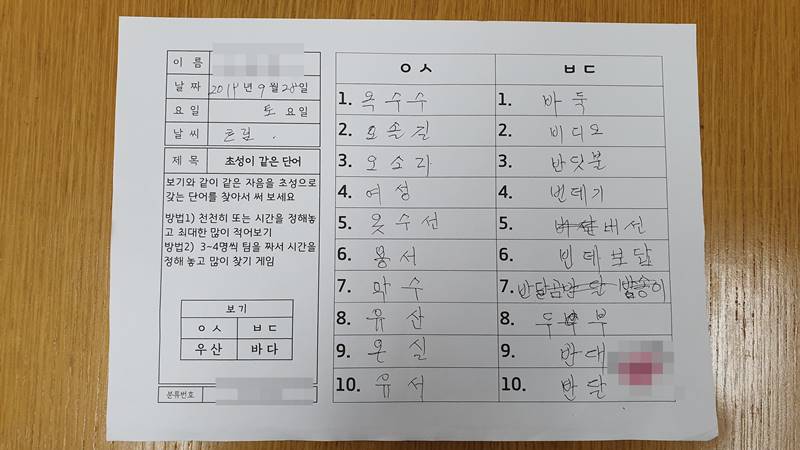 이 름
날 짜 2019년 9월 28일
요 일 토 요일
날 씨 흐림 .
제 목 초성이 같은 단어
보기와 같이 같은 자음을 초성으로
갖는 단어를 찾아서 써 보세요
방법1) 천천히 또는 시간을 정해놓
고 최대한 많이 적어보기
방법2) 3~4명씩 팀을 짜서 시간을
정해 놓고 많이 찾기 게임
보기
ㅇㅅ ㅂㄷ
우산 바다
분류번호
ㅇㅅ ㅂㄷ
1. 옥수수 1. 바둑
2. 오솔길 2. 비디오
3. 오소라 3. 반닷불
4. 여성 4. 번데기
5. 옷수선 5. 버선
6. 용서 6. 빈데보답
7. 막수 7. 반달곰반달 밤송이
8. 유산 8. 두부
9. 온실 9. 반대
10. 유서 10. 반달